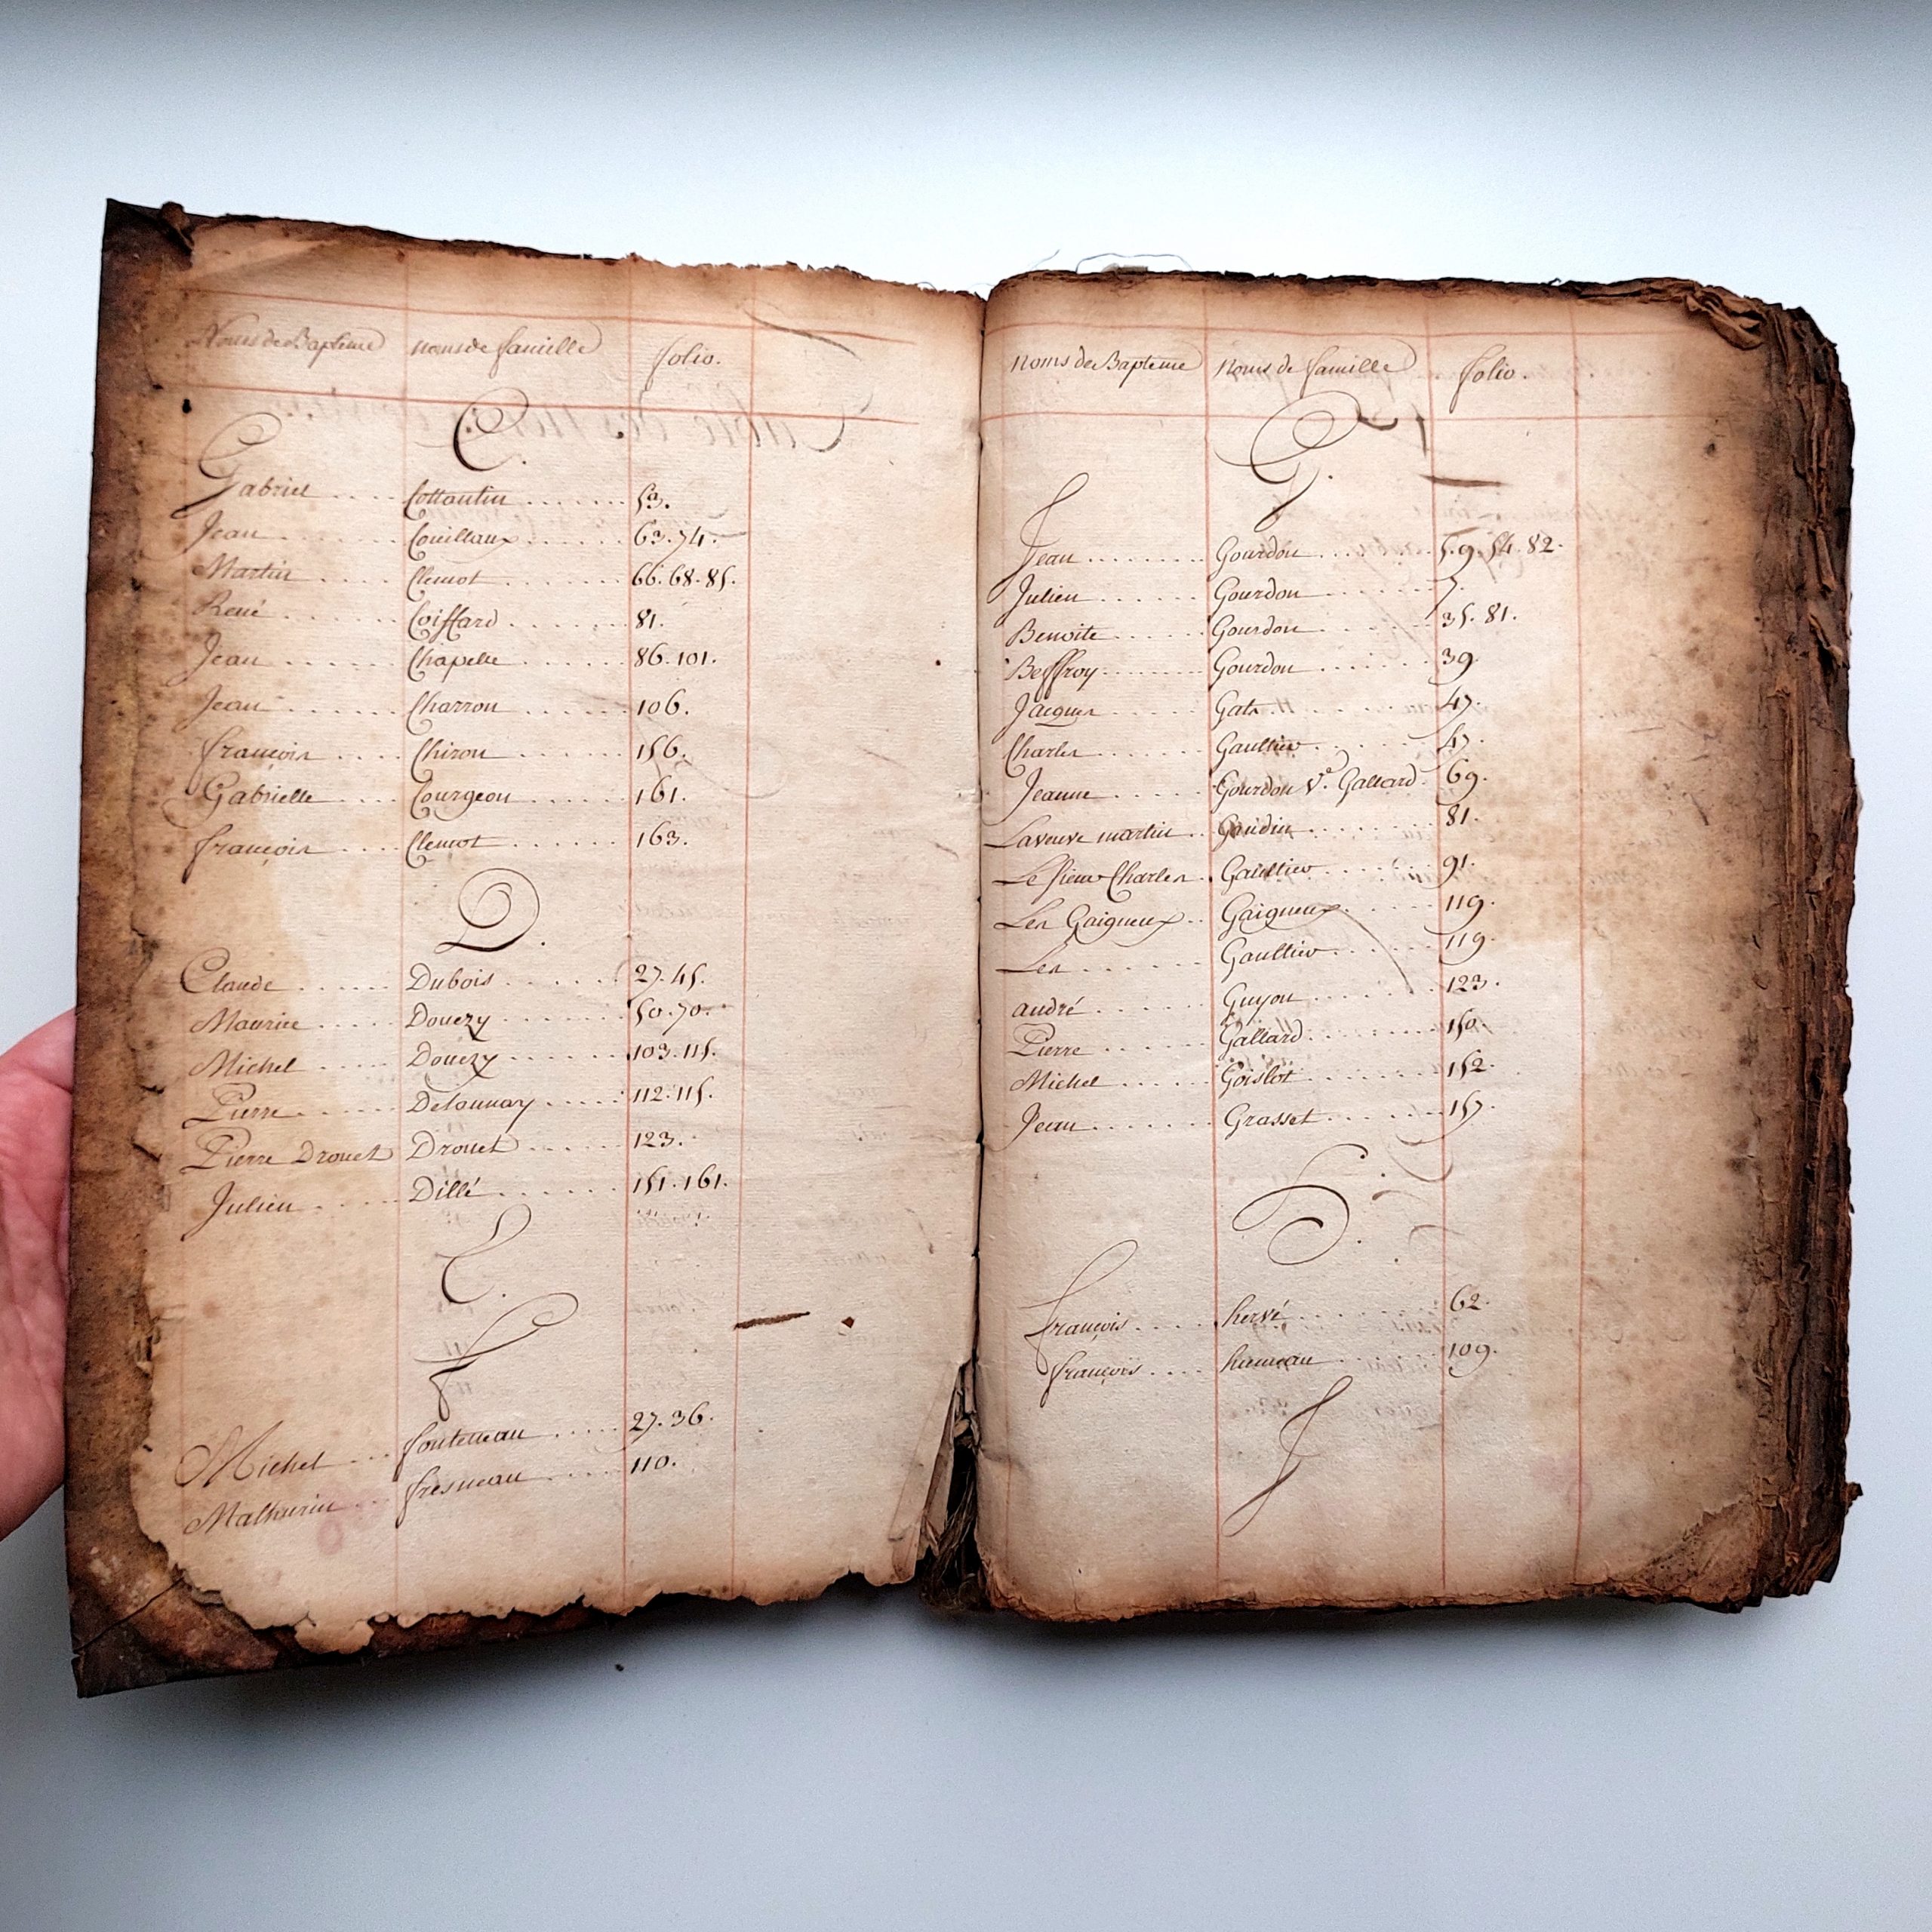 Noms de Bapteme noms de famille folio.
C.
Gabriel .... Cottantin ....... 53.
Jean ...... Couillaux ...... 63. 74.
Martin .... Clemot ....... 66. 68. 85.
René ..... Coiffard ...... 81.
Jean ...... Chapelle ...... 86. 101.
Jean ...... Charron ...... 106.
françois ... Chiron ...... 156.
Gabrielle .... Courgeon ...... 161.
françois .... Clemot ...... 163.
D.
Claude ...... Dubois ...... 27. 45.
Maurice .... Douezy ...... 50. 70.
Michel .... Douezy ...... 103. 115.
Pierre ..... Delaunay .... 112. 115.
Pierre Drouet Drouet .... 123.
Julien .... Dillé ...... 151. 161.
E.
F
Michel ... fonteneau ..... 27. 36.
Mathurin ... fresneau .... 110.
noms de Bapteme noms de famille folio.
G.
Jean ....... Gourdon .... 5. 9. 54. 82.
Julien ...... Gourdon ...... 7.
Benoite ..... Gourdon ..... 35. 81.
Beffroy ...... Gourdon ...... 39.
Jacques ..... Gats ...... 47.
Charles ..... Gaultier ..... 47.
Jeanne ..... Gourdon Ve. Gallard. 69.
La veuve martin .. Gaudin ...... 81.
Le sieur Charles . Gaultier ..... 91.
Les Gaigneux .. Gaigneux ..... 119.
Les ...... Gaultier .... 119.
andré ..... Guyon ..... 123.
Pierre ..... Gallard ...... 150.
Michel ..... Goislot ...... 152.
Jean ...... Grasset ..... 157.
H.
françois .... hervé ...... 62.
françois .... huneau ..... 109.
J